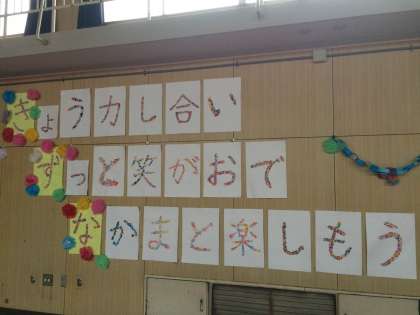 きょう力し合い
ずっと笑がおで
なかまと楽しもう